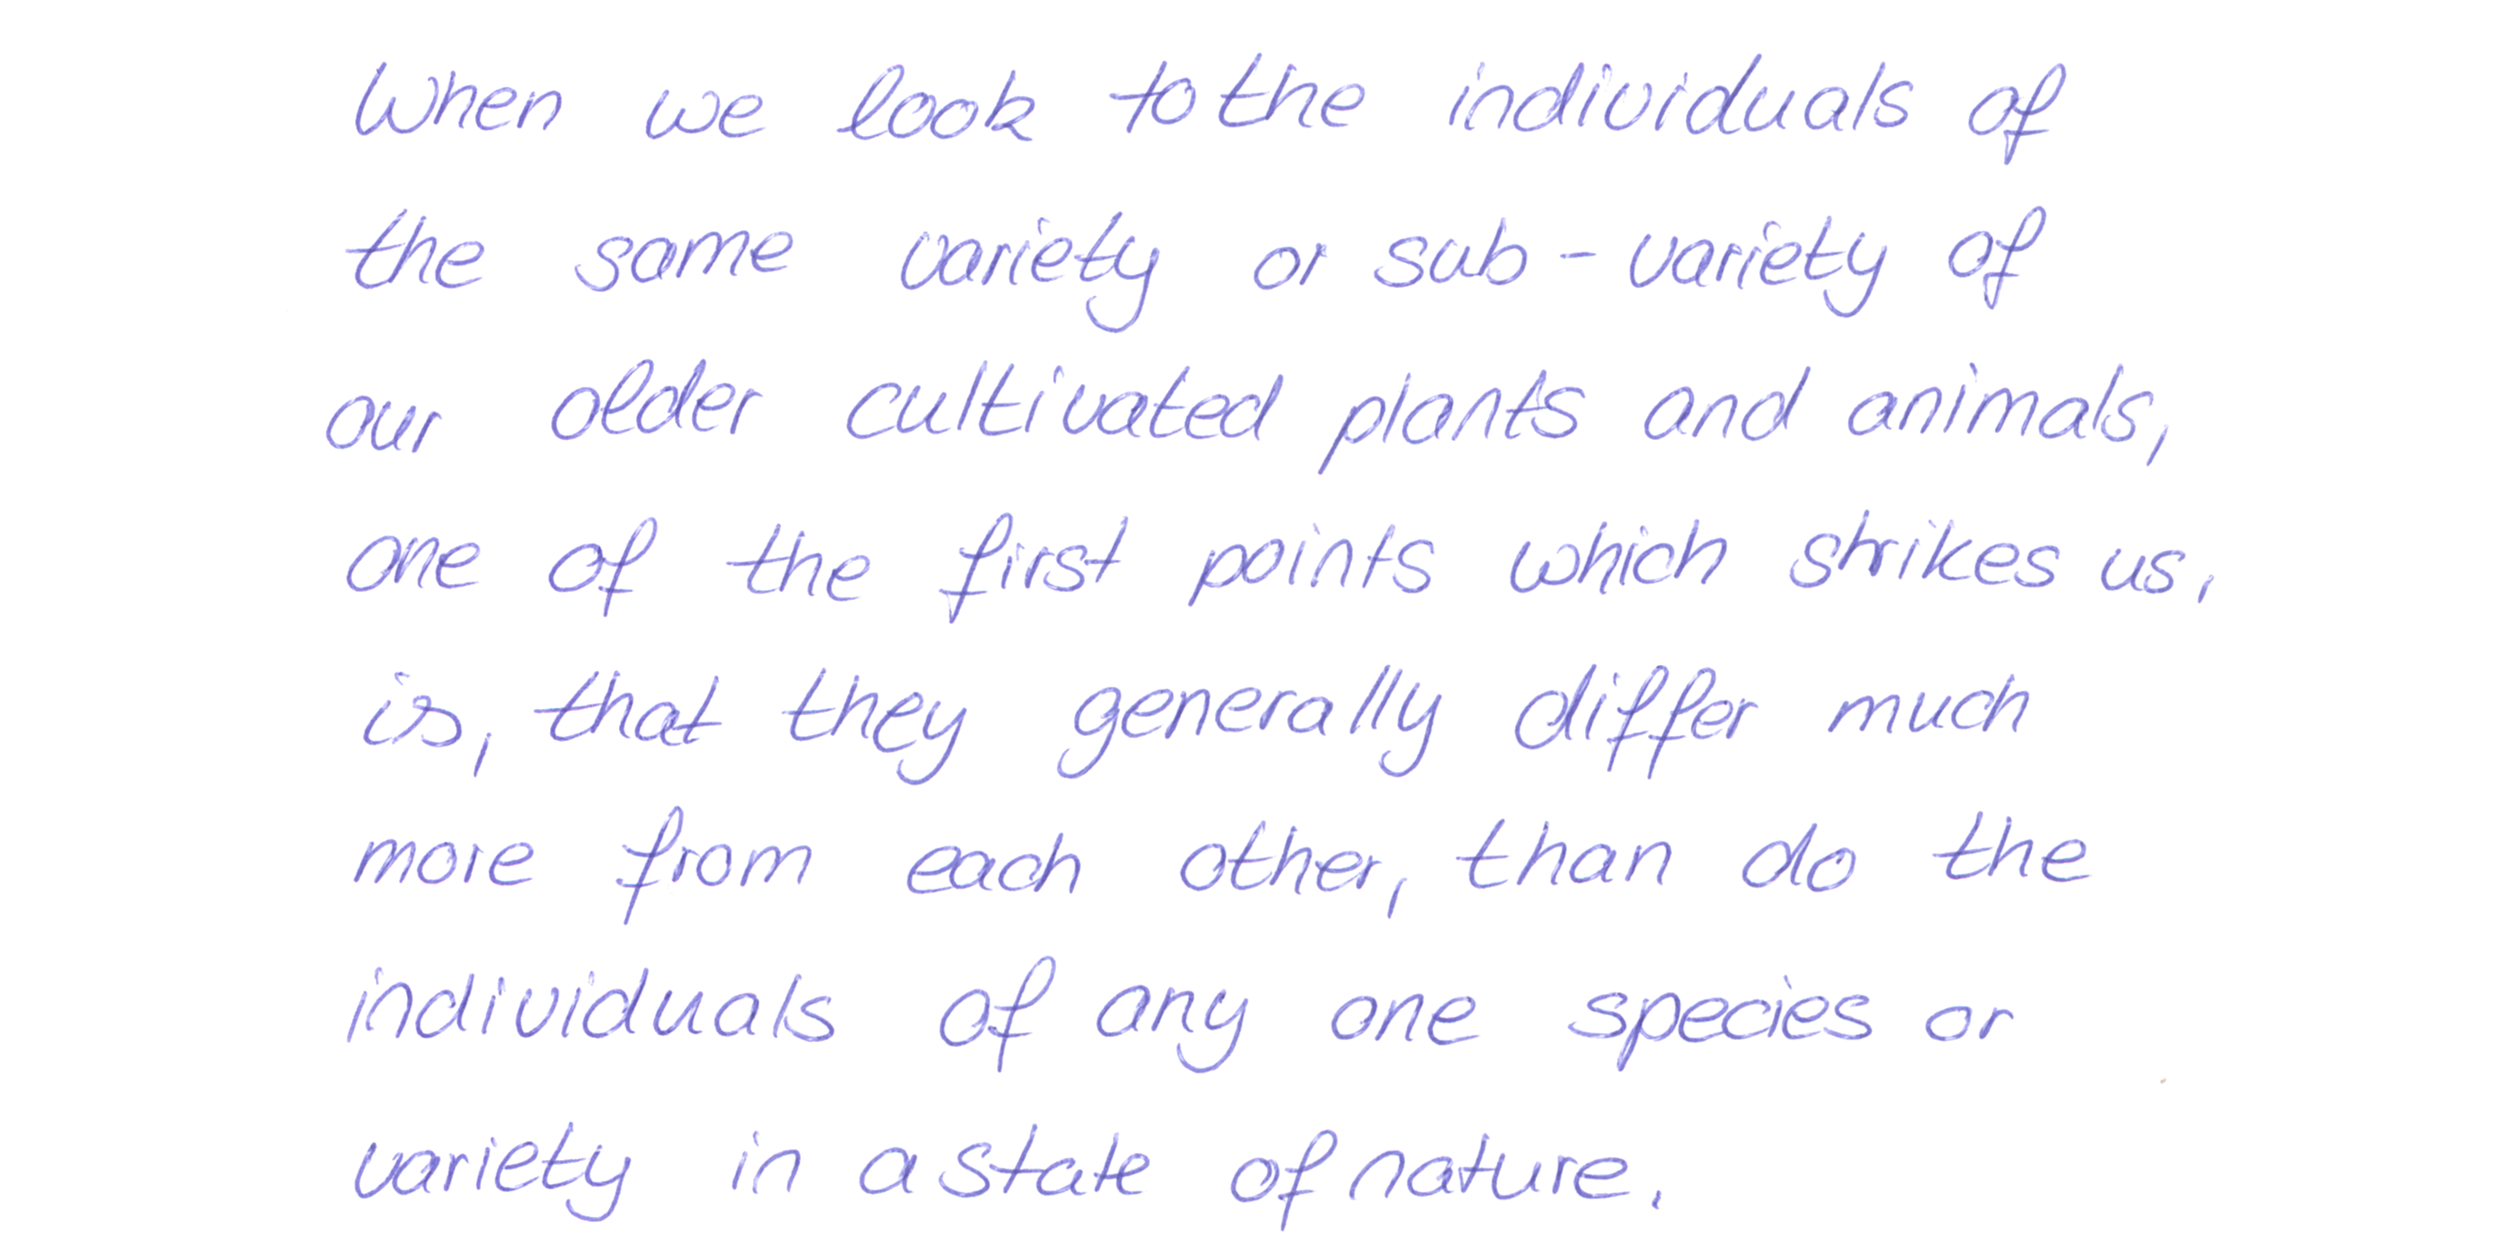 When we look to the individuals of
the same variety or sub-variety of
our older cultivated plants and animals,
one of the first points which strikes us,
is, that they generally differ much
more from each other, than do the
individuals of any one species or
variety in a state of nature.